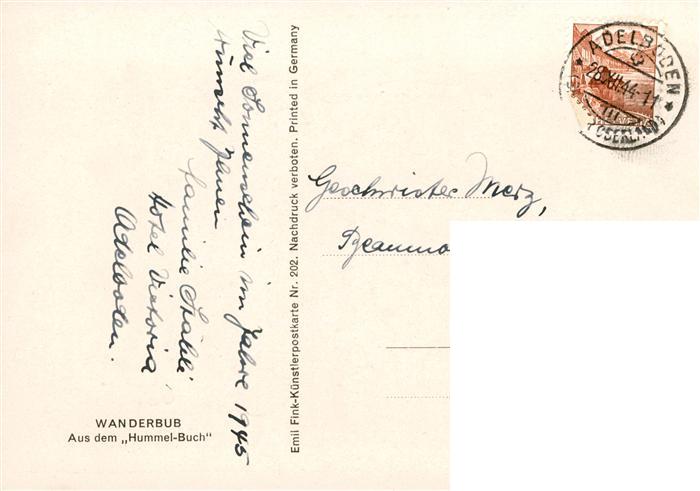 Viel Sonnenschein im Jahre 1945
wünscht Ihnen
Familie Stähli
Hotel Victoria
Adelboden.
WANDERBUB
Aus dem „Hummel-Buch“
Emil Fink-Künstlerpostkarte Nr. 202. Nachdruck verboten. Printed in Germany
ADELBODEN
28.XII.44-11
Geschwister Merz,